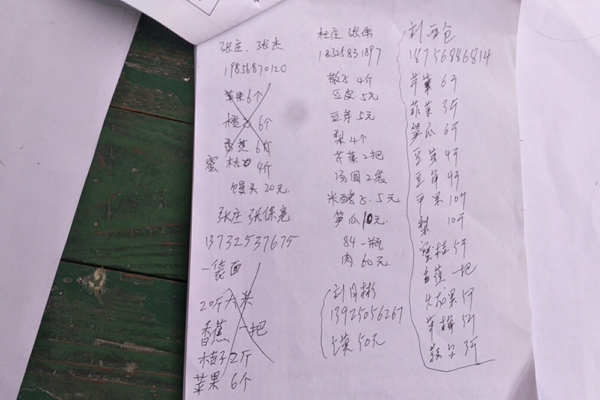 张庄、张杰
19856870120
苹果6个
橙子6个
香蕉6个
蜜桔4斤
馒头20元
张庄 张保亮
13732537675
一袋面
20斤大米
香蕉一把
桔子2斤
苹果6个
杜庄 张
18325831897
4斤
豆皮5元
豆芽5元
梨4个
芹菜2把
汤圆2袋
米 5元
笋瓜10元
84一瓶
肉60元
刘自彬
13925056267
菜50元
刘
18756886814
芹菜6斤
蒜苗3斤
笋瓜6斤
豆 4斤
豆芽4斤
苹果10斤
梨10斤
蜜桔5斤
香蕉一把
5斤
草莓5斤
3斤